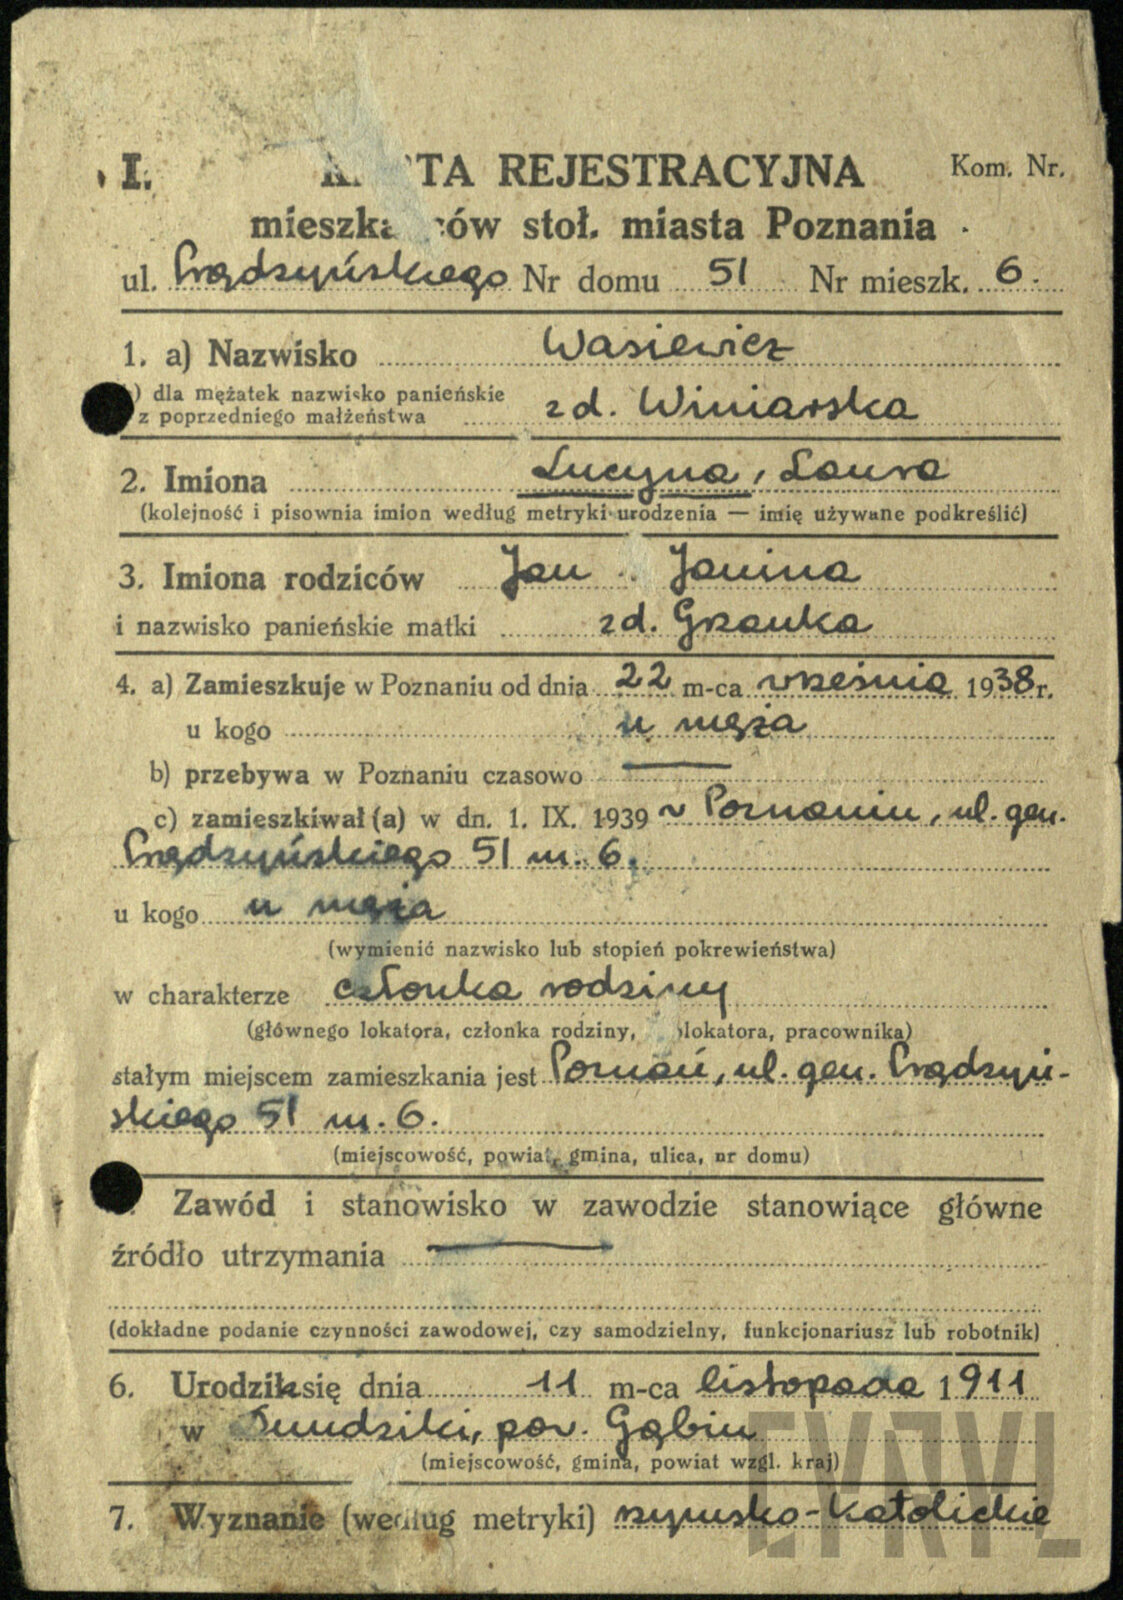 I. K TA REJESTRACYJNA Kom. Nr.
mieszka ców stoł. miasta Poznania
ul. Prądzyńskiego Nr domu 51 Nr mieszk. 6.
1. a) Nazwisko Wasiewicz
) dla mężatek nazwisko panieńskie
z poprzedniego małżeństwa zd. Winiarska
2. Imiona Lucyna, Laura
(kolejność i pisownia imion według metryki urodzenia — imię używane podkreślić)
3. Imiona rodziców Jan Janina
i nazwisko panieńskie matki zd. Grzanka
4. a) Zamieszkuje w Poznaniu od dnia 22 m-ca września 1938 r.
u kogo u męża
b) przebywa w Poznaniu czasowo —
c) zamieszkiwał(a) w dn. 1. IX. 1939 w Poznaniu, ul. gen.
Prądzyńskiego 51 m. 6.
u kogo u męża
(wymienić nazwisko lub stopień pokrewieństwa)
w charakterze członka rodziny
(głównego lokatora, członka rodziny, lokatora, pracownika)
stałym miejscem zamieszkania jest Poznań, ul. gen. Prądzyń-
skiego 51 m. 6.
(miejscowość, powiat, gmina, ulica, nr domu)
Zawód i stanowisko w zawodzie stanowiące główne
źródło utrzymania —
(dokładne podanie czynności zawodowej, czy samodzielny, funkcjonariusz lub robotnik)
6. Urodził się dnia 11 m-ca listopada 1911
w pow. Gąbin
(miejscowość, gmina, powiat wzgl. kraj)
7. Wyznanie (według metryki) rzymsko-katolickie
CYRYL